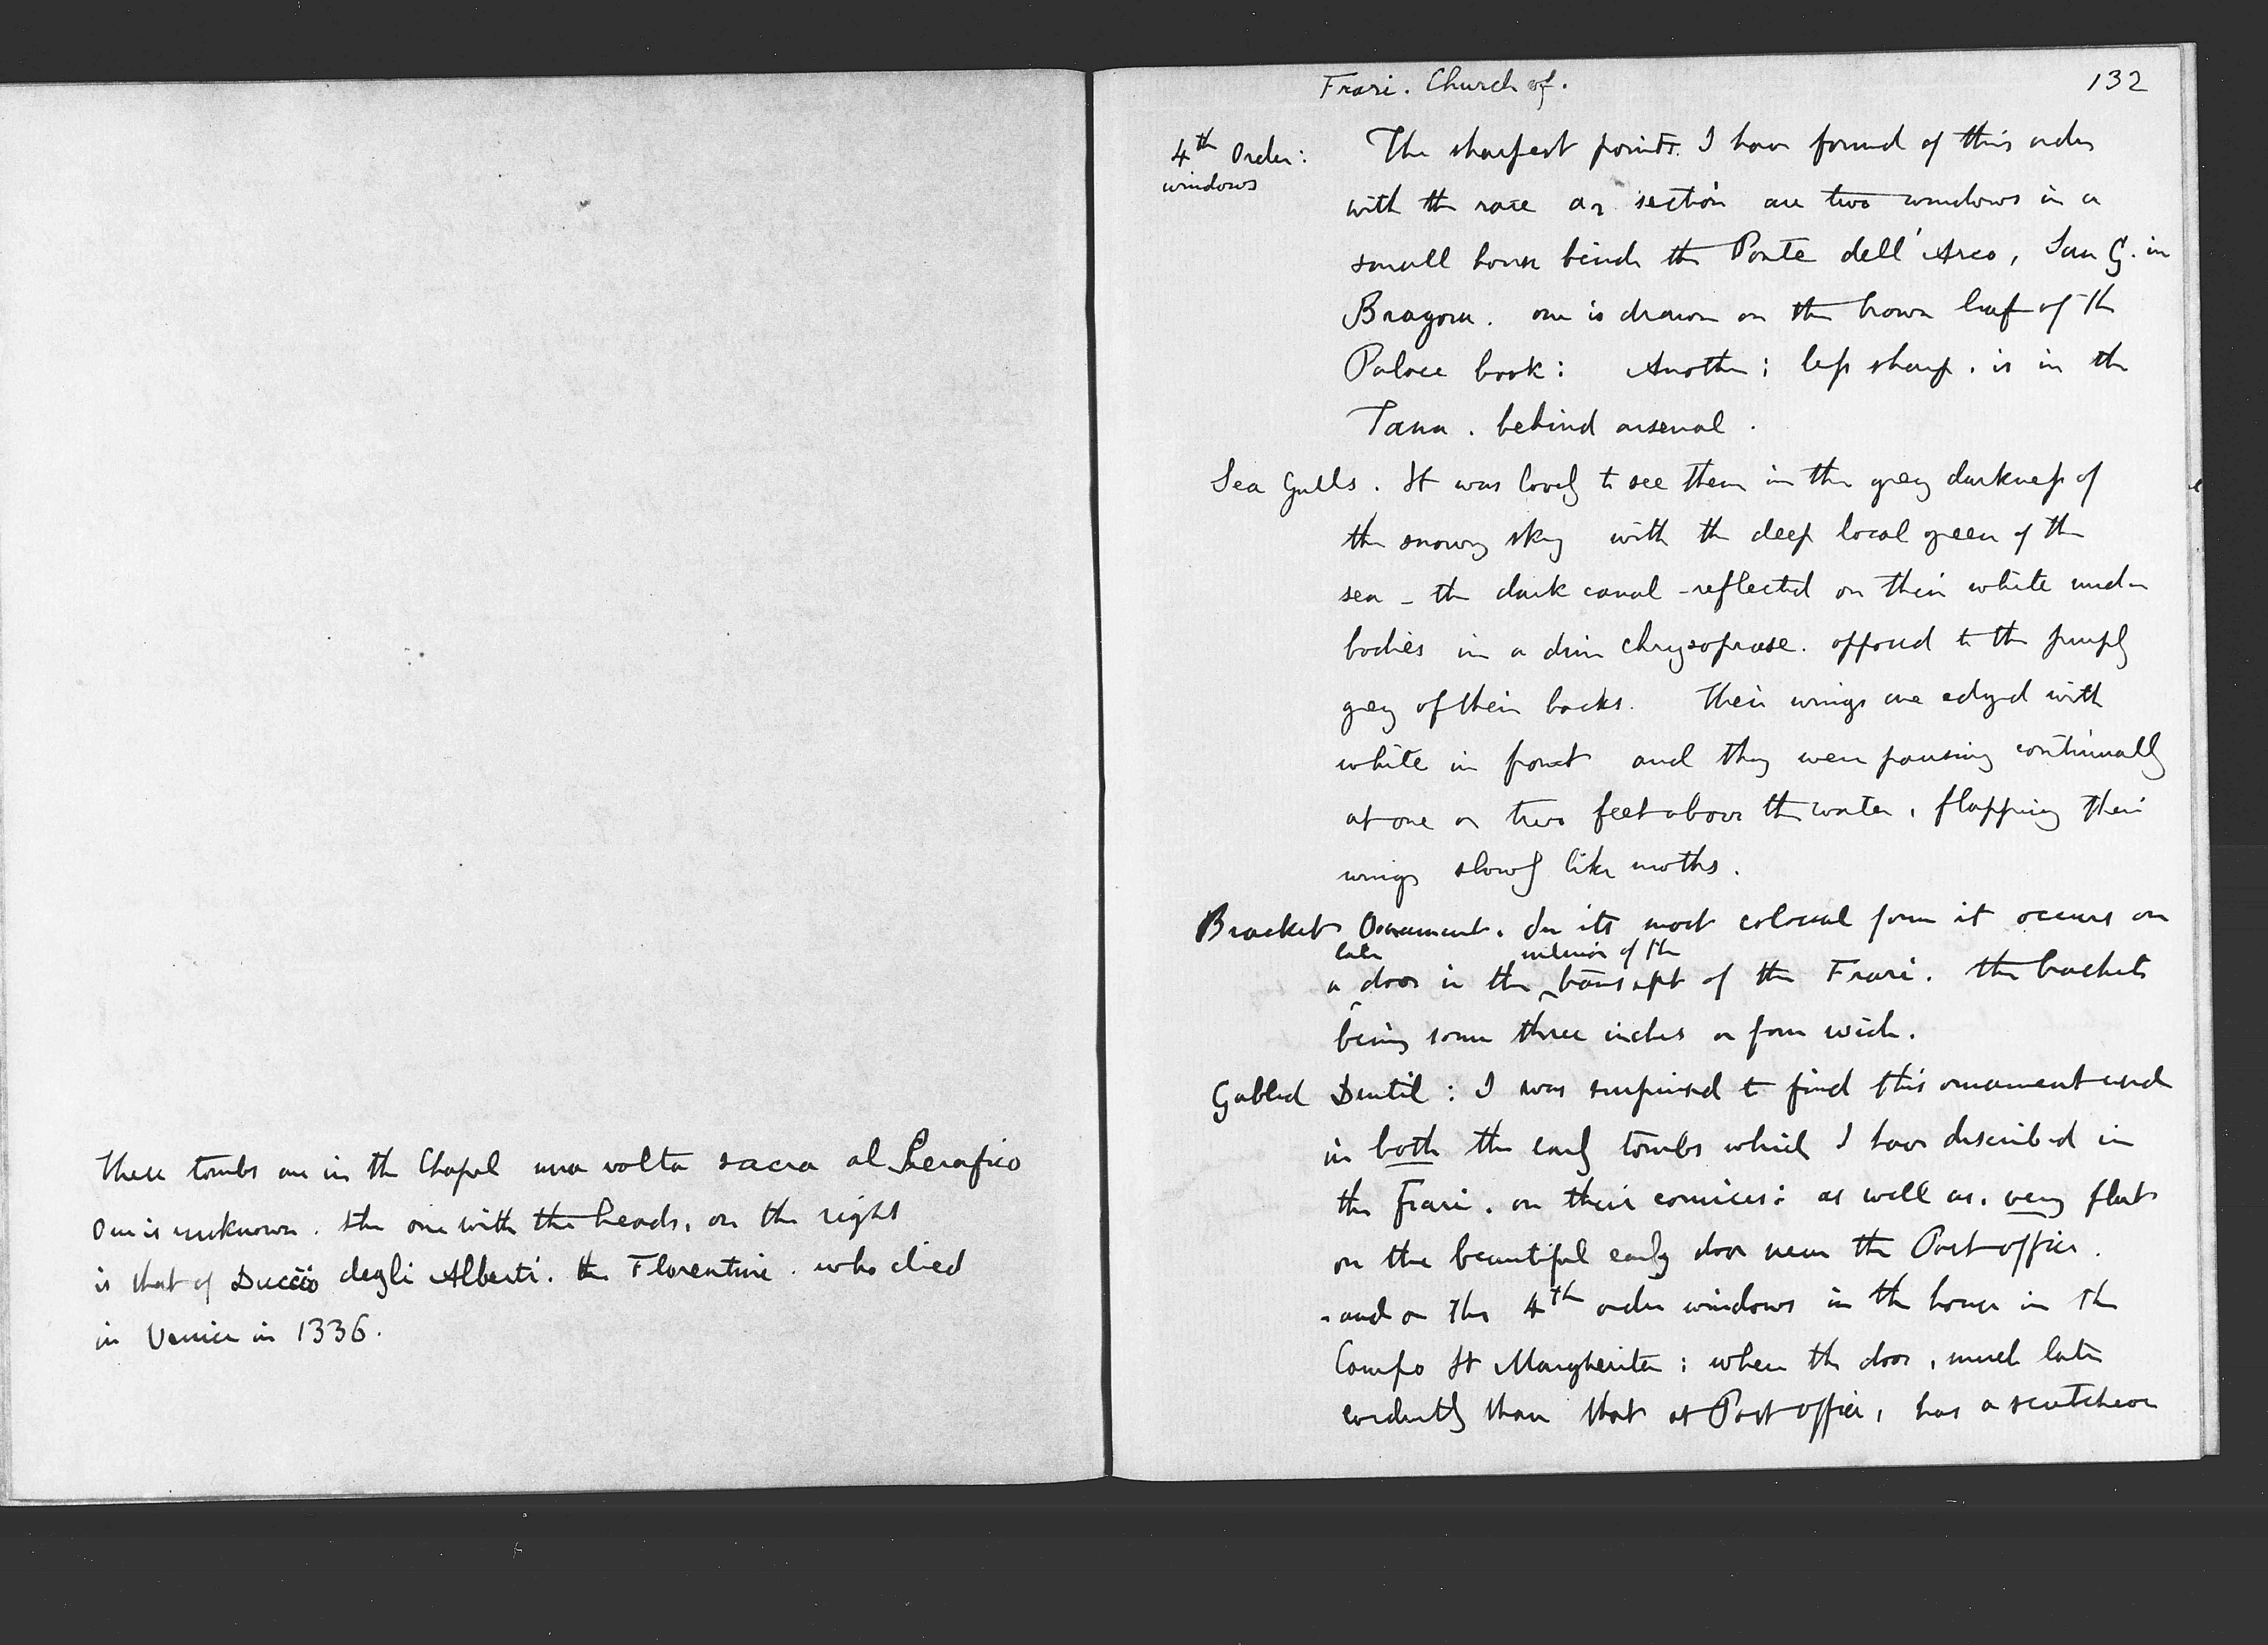 These tombs are in the Chapel una volta sacra al Serafico
One is unknown. the one with the heads, on the right
is that of Duccio degli Alberti. the Florentine. who died
in Venice in 1336.
Frari. Church of.
132
4th Order:
windows
The sharpest points I have found of this order
with the rare section are two windows in a
small house beside the Ponte dell' Arco, San G. in
Bragora. one is drawn on the brown leaf of the
Palace book: Another; less sharp. is in the
Tana. behind arsenal.
Sea Gulls. It was lovely to see them in the grey darkness of
the snowy sky with the deep local green of the
sea - the dark canal - reflected on their white under
bodies in a dim chrysoprase. opposed to the purply
grey of their backs. Their wings are edged with
white in front and they were pausing continually
at one or two feet above the water, flapping their
wings slowly like moths.
Bracket Ornament. In its most colossal form it occurs on
late interior of the
a door in the transept of the Frari. the brackets
being some three inches or four wide.
Gabled Dentil: I was surprised to find this ornament used
in both the early tombs which I have described in
the Frari. on their cornices: as well as, very flat
on the beautiful early door near the Post office.
- and on the 4th order windows in the house in the
Campo St Margherita: where the door, much later
evidently than that at Post office, has a scutcheon